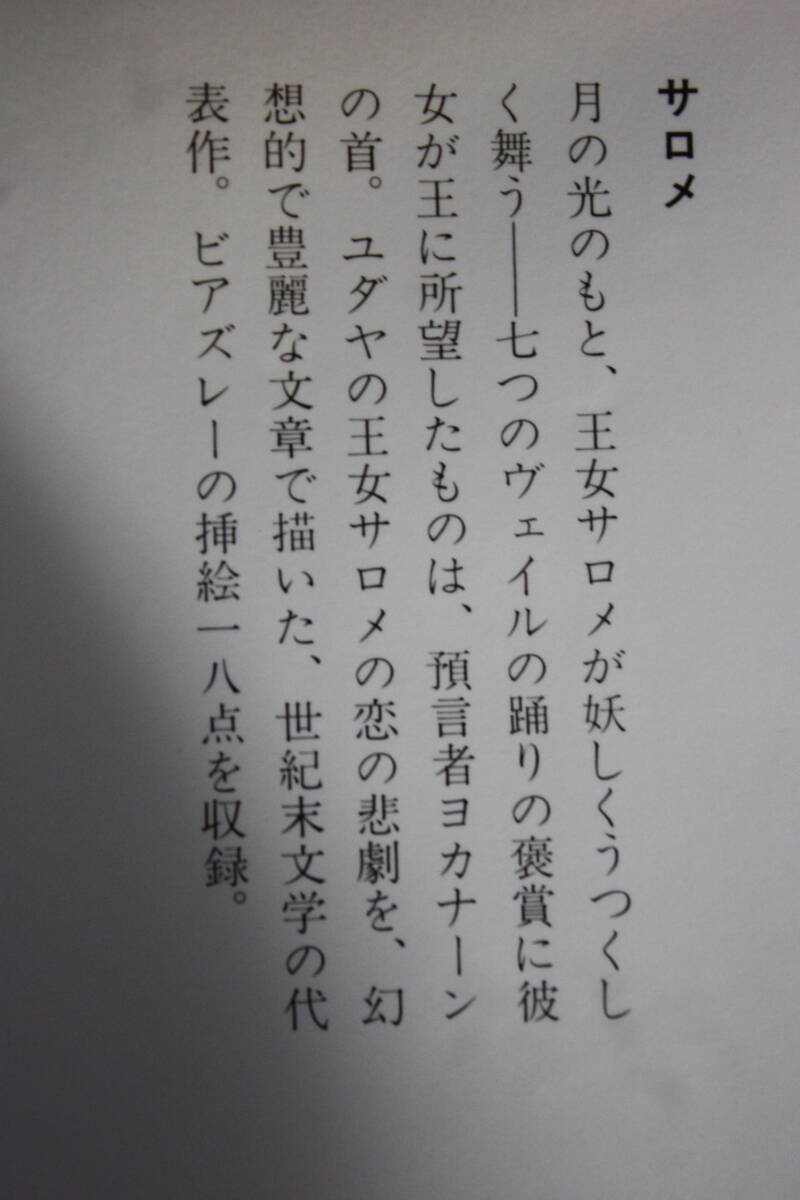 サロメ
月の光のもと、王女サロメが妖しくうつくし
く舞う――七つのヴェイルの踊りの褒賞に彼
女が王に所望したものは、預言者ヨカナーン
の首。ユダヤの王女サロメの恋の悲劇を、幻
想的で豊麗な文章で描いた、世紀末文学の代
表作。ビアズレーの挿絵一八点を収録。